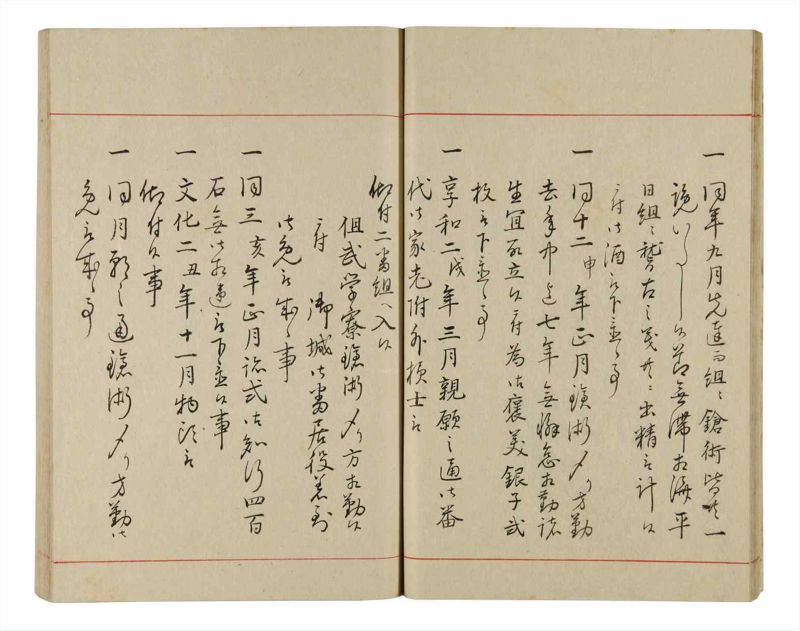 一 同年九月先達而組々鎗術皆共一
覧いたし候節無滞相済平
日組々稽古之義共ニ出精ニ付
被下置候事
一 同十二申年正月鎗術〆り方勤
去年中迄七年無懈怠相勤諸
生宜取立候ニ付為御褒美銀子弐
枚被下置候事
一 享和二戌年三月親願之通御番
代御家老附外様士被
仰付二番組ヘ入候
但武学寮鎗術〆り方相勤候
付 御城御番居役
御免被成候事
一 同三亥年正月諸式御知行四百
石無御相違被下置候事
一 文化二丑年十一月物頭被
仰付候事
一 同月願之通鎗術〆り方勤御
免被成候事